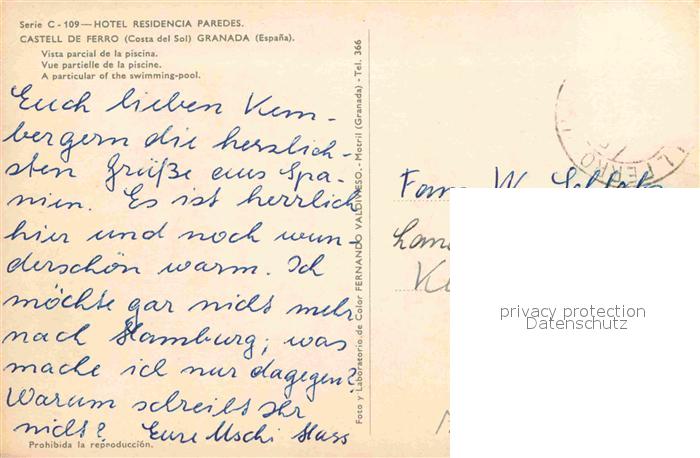 Serie C - 109 — HOTEL RESIDENCIA PAREDES.
CASTELL DE FERRO (Costa del Sol) GRANADA (España).
Vista parcial de la piscina.
Vue partielle de la piscine.
A particular of the swimming-pool.
Euch lieben Kem-
bergern die herzlich-
sten Grüße aus Spa-
nien. Es ist herrlich
hier und noch wun-
derschön warm. Ich
möchte gar nicht mehr
nach Hamburg; was
mache ich nur dagegen?
Warum schreibt Ihr
nicht? Eure Uschi Hass
Prohibida la reproducción.
Foto y Laboratorio de Color FERNANDO VALDIVIESO. - Motril (Granada) - Tel. 366
Fam. W.
privacy protection
Datenschutz